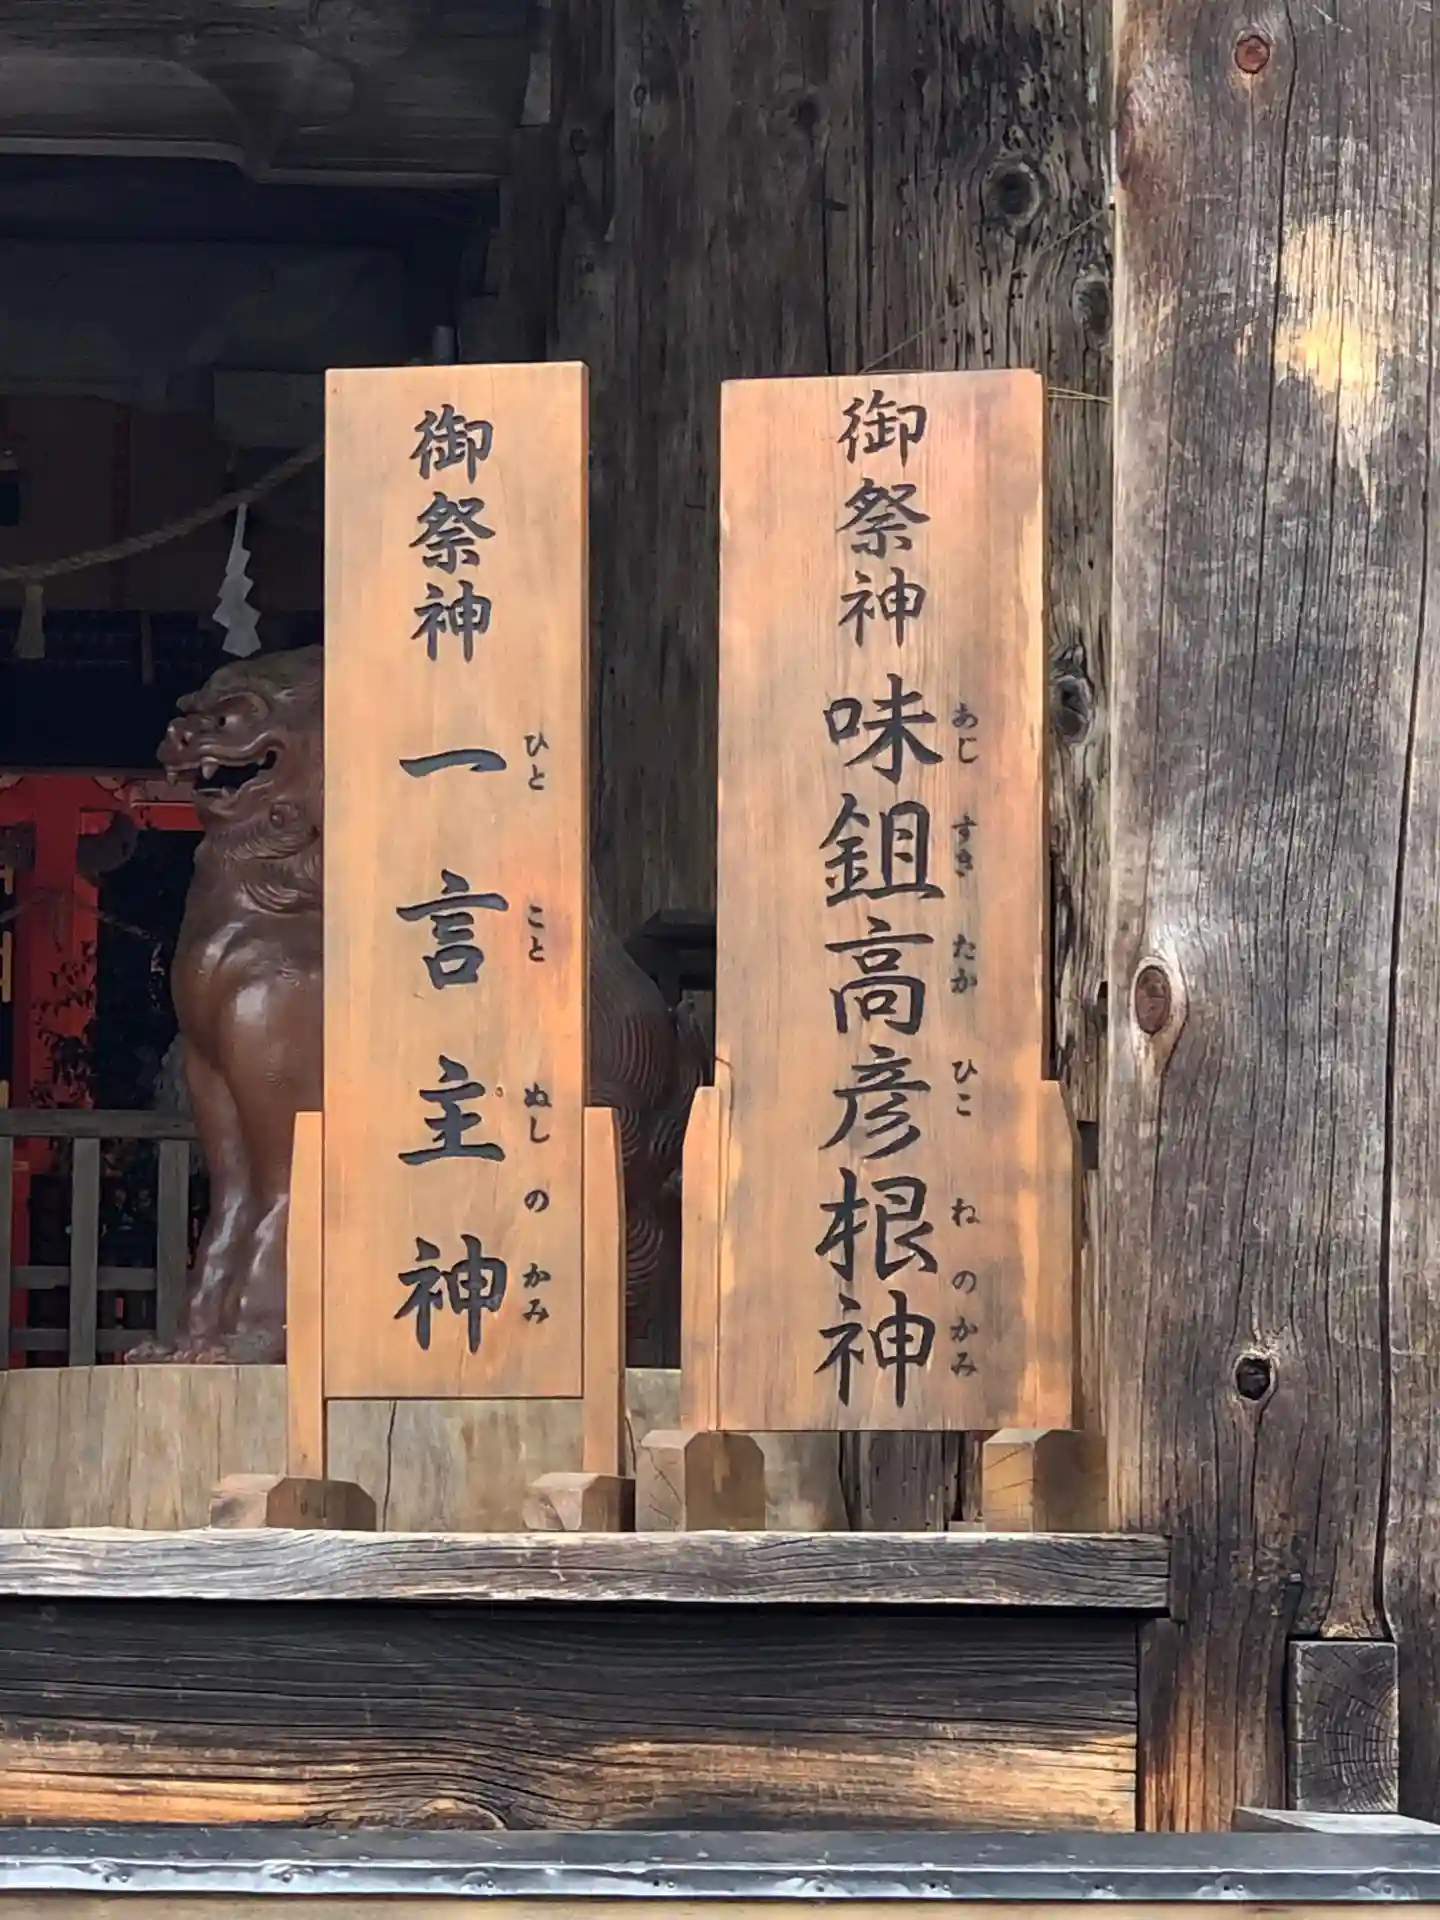 御祭神 味鉏高彦根神
あじ すき たか ひこ ね の かみ
御祭神 一言主神
ひと こと ぬし の かみ